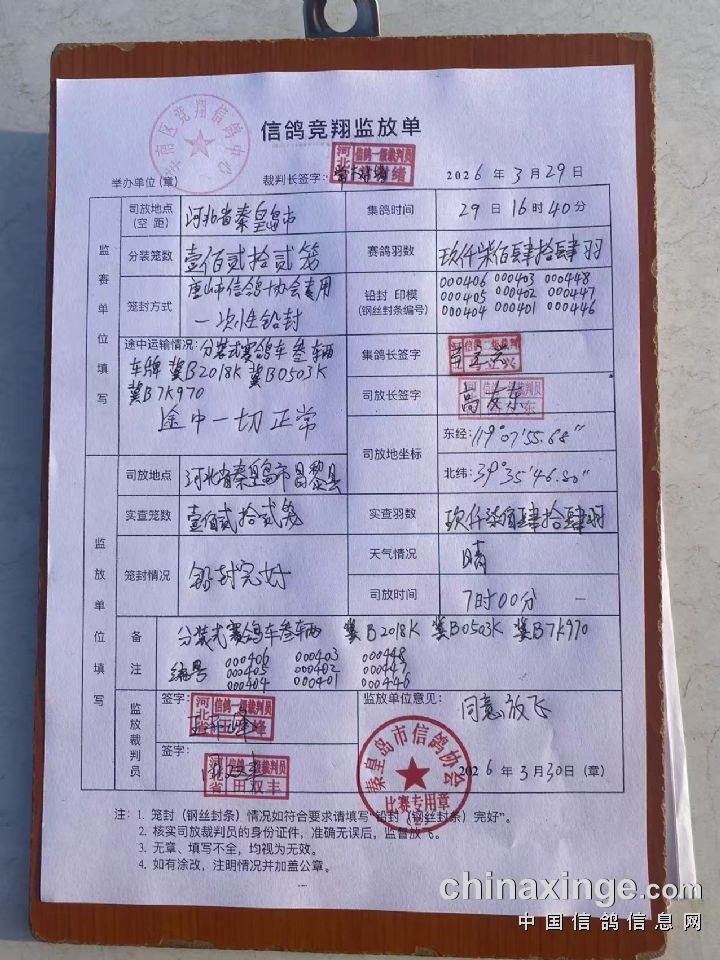 信鸽竞翔监放单
信区竞翔信鸽中心
举办单位(章) 裁判长签字: 河北 信鸽一级裁判员 2026 年 3 月 29 日
监赛单位填写
司放地点(空 距) 河北省秦皇岛市 集鸽时间 29 日 16 时 40 分
分装笼数 壹佰贰拾贰笼 赛鸽羽数 玖仟柒佰肆拾肆羽
笼封方式 唐山市信鸽协会专用 一次性铅封 铅封 印模(钢丝封条编号)
000406 000403 000448
000405 000402 000447
000404 000401 000446
途中运输情况: 分装式赛鸽车叁辆
车牌 冀B2018K 冀B0503K
冀B7K970
途中一切正常
集鸽长签字
司放长签字 信鸽一级裁判员
司放地坐标 东经: 119°07′55.68″
北纬: 39°35′46.80″
监放单位填写
司放地点 河北省秦皇岛市昌黎县
实查笼数 壹佰贰拾贰笼 实查羽数 玖仟柒佰肆拾肆羽
笼封情况 铅封完好 天气情况 晴
司放时间 7时00分
备注 分装式赛鸽车叁辆 冀B2018K 冀B0503K 冀B7K970
编号 000406 000403 000448
000405 000402 000447
000404 000401 000446
监放裁判员
签字: 河北省 信鸽一级裁判员
签字: 河北省 信鸽一级裁判员 田双丰
监放单位意见: 同意放飞
秦皇岛市信鸽协会
比赛专用章
2026 年 3 月 30 日 (章)
注: 1. 笼封(钢丝封条)情况如符合要求请填写“铅封(钢丝封条)完好”。
2. 核实司放裁判员的身份证件,准确无误后,监督放飞。
3. 无章、填写不全,均视为无效。
4. 如有涂改,注明情况并加盖公章。
chinaxinge.com
中国信鸽信息网